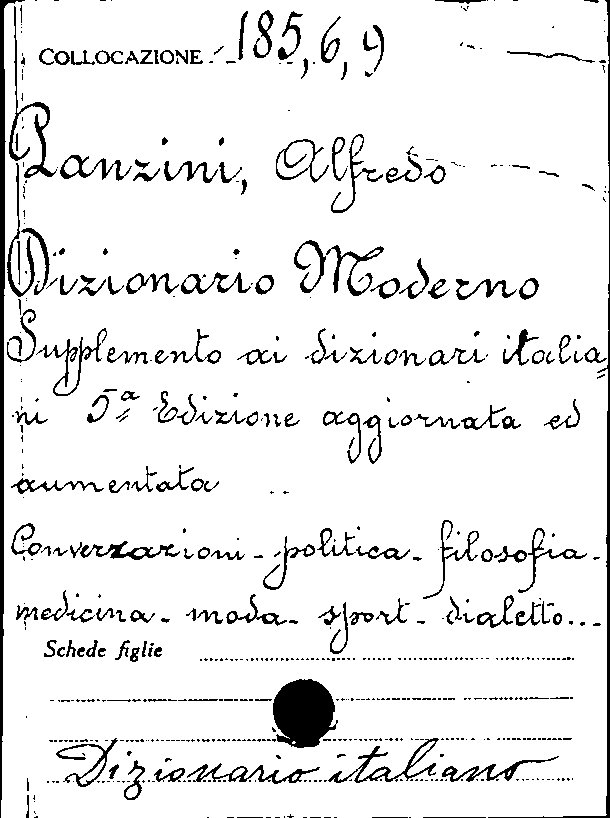 COLLOCAZIONE 185, 6, 9
Panzini, Alfredo
Dizionario Moderno
Supplemento ai dizionari italia=
ni 5ª Edizione aggiornata ed
aumentata ..
Converzazioni - politica - filosofia -
medicina - moda - sport - dialetto...
Schede figlie
Dizionario italiano